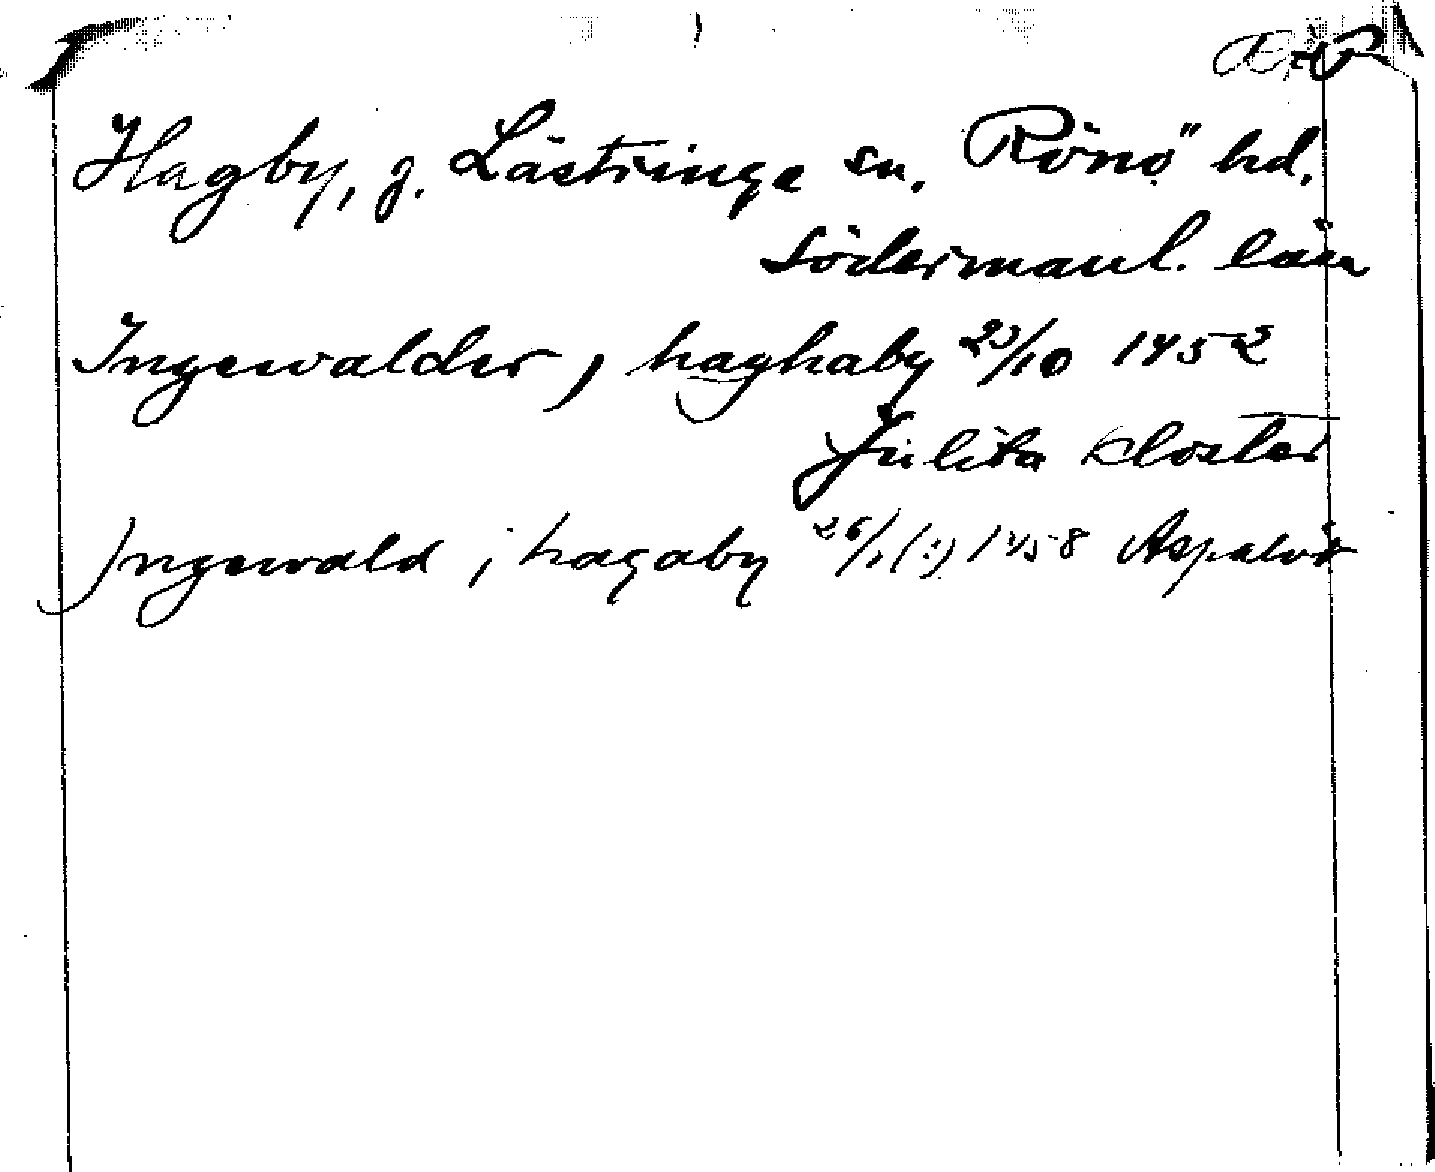 Hagby, g. Lästringe sn. Rönö hd.
Södermanl. län
Ingewalder j haghaby 23/10 1452
Julita kloster
Ingewald i hagaby 26/1 (?) 1458